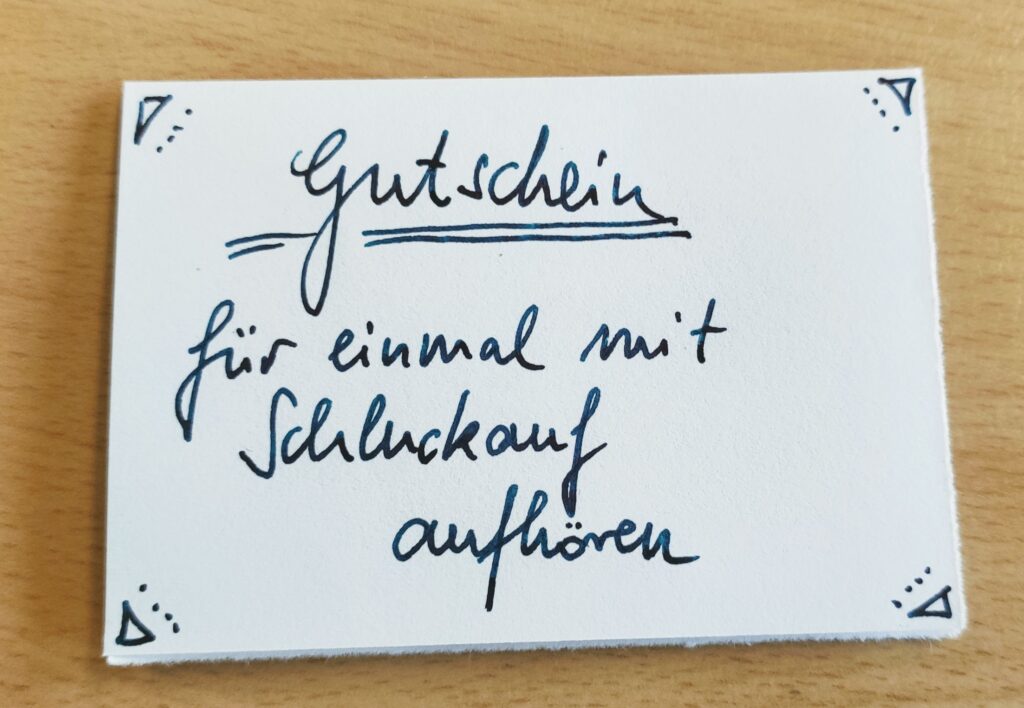 Gutschein
für einmal mit
Schluckauf
aufhören